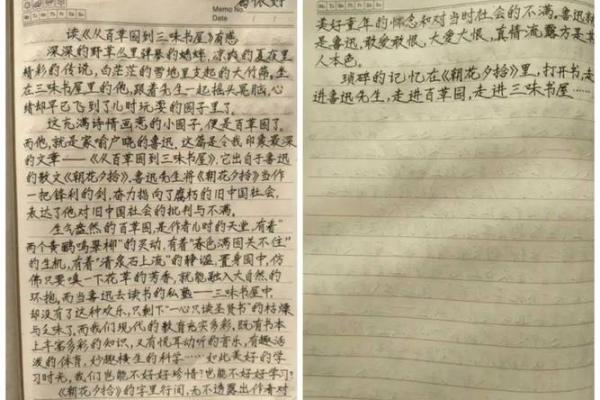 Memo No.
Date
很好
读《从百草园到三味书屋》有感
深深的野草丛里弹琴的蟋蟀,凉爽的夏夜里
精彩的传说,白茫茫的雪地里支起的大竹筛,坐
在三味书屋里的他,跟着先生一起摇头晃脑,心
绪却早已飞到了儿时玩耍的园子里了。
这充满诗情画意的小园子,便是百草园了。
而他,就是家喻户晓的鲁迅。这篇是令我印象最深
的文章——《从百草园到三味书屋》,它出自于鲁迅
的散文《朝花夕拾》。鲁迅先生将《朝花夕拾》当作
一把锋利的剑,奋力指向了腐朽的旧中国社会,
表达了他对旧中国社会的批判与不满。
生气盎然的百草园,是作者儿时的天堂,有着“
两个黄鹂鸣翠柳”的灵动,有着“春色满园关不住”
的生机,有着“清泉石上流”的静谧,置身园中,仿
佛只要嗅一下花草的芳香,就能融入大自然的
环抱。而当鲁迅去读书的私塾——三味书屋中,
却没有了这种欢乐,只剩下“一心只读圣贤书”的枯燥
与乏味了。而我们现代的教育充实多彩,既有书本
上丰富多彩的知识,又有悦耳动听的音乐,有趣活
泼的体育,妙趣横生的科学……如此美好的学
习时光,我们岂能不好好珍惜?岂能不好好学习?
《朝花夕拾》的字里行间,无不透露出作者对
美好童年的怀念和对当时社会的不满。鲁迅
是鲁迅,敢爱敢恨,大爱大恨,真情流露方是其
人本色。
琐碎的记忆在《朝花夕拾》里,打开书,走
进鲁迅先生,走进百草园,走进三味书屋……